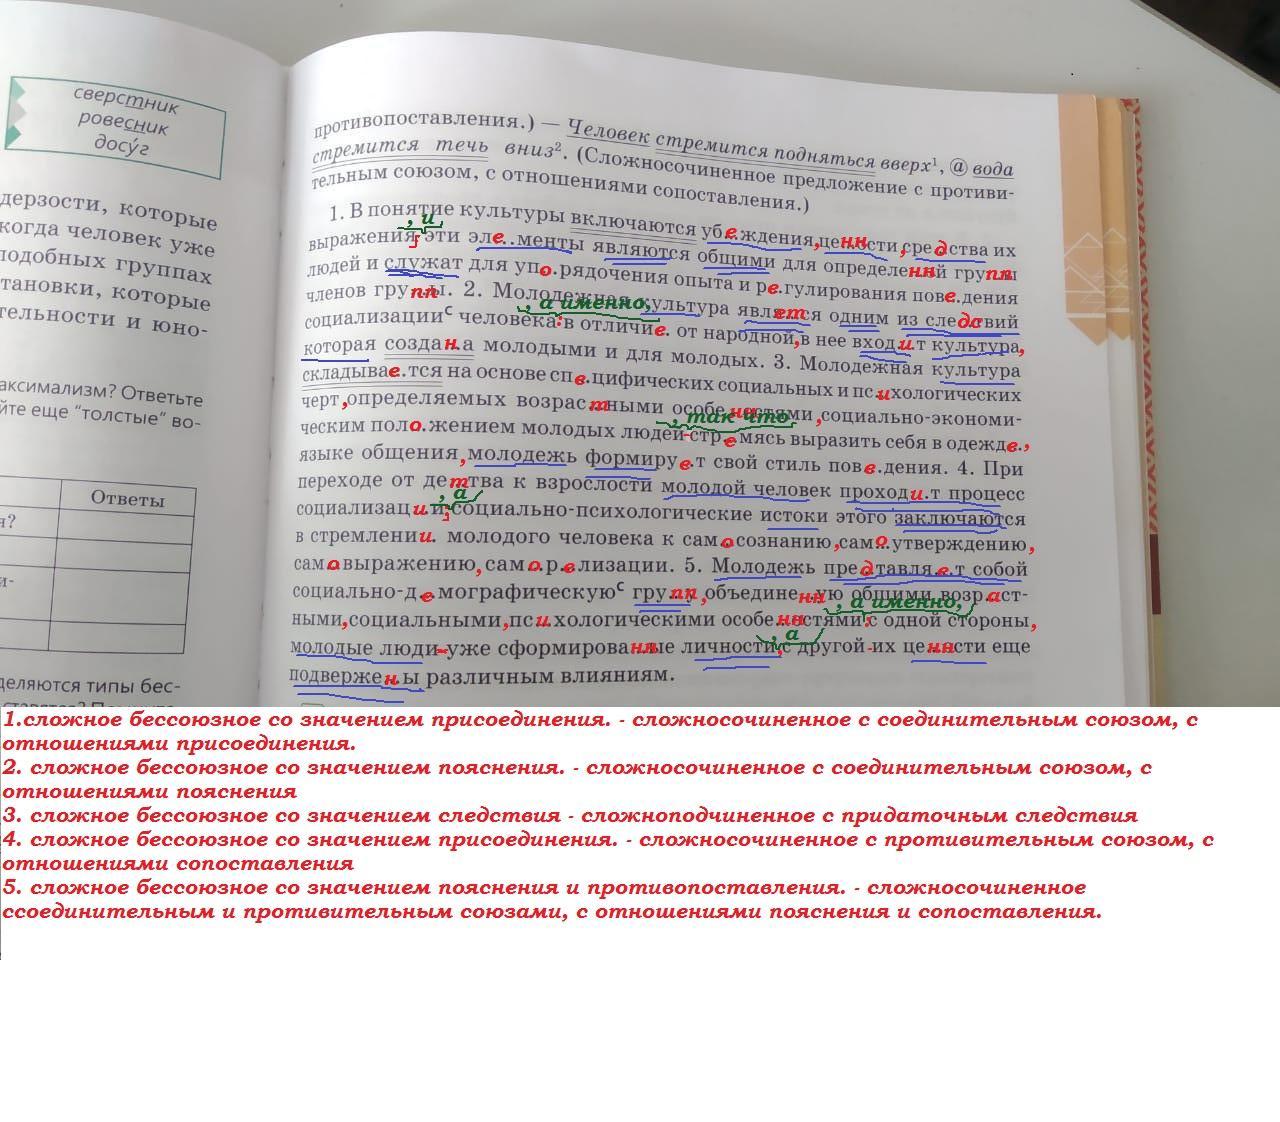 сверстник
ровесник
досу́г
дерзости, которые
когда человек уже
подобных группах
тановки, которые
тельности и юно-
аксимализм? Ответьте
йте еще "толстые" во-
Ответы
я?
и-
деляются типы бес-
противопоставления.) — Человек стремится подняться вверх¹, @ вода
стремится течь вниз². (Сложносочиненное предложение с противи-
тельным союзом, с отношениями сопоставления.)
1. В понятие культуры включаются убеждения, ценности, средства их
выражения, и эти эле..менты являются общими для определенной группы
людей и служат для упо.рядочения опыта и ре.гулирования пове.дения
членов группы. 2. Молодежная культура является одним из следствий
социализации с человека: , а именно, в отличие. от народной, в нее входи.т культура,
которая создан.а молодыми и для молодых. 3. Молодежная культура
складывае.тся на основе спе.цифических социальных и психологических
черт, определяемых возрастными особенностями, социально-экономи-
ческим поло.жением молодых людей - , так что стремясь выразить себя в одежде.,
языке общения, молодежь формируе.т свой стиль пове.дения. 4. При
переходе от детства к взрослости молодой человек проходи.т процесс
социализации; , а социально-психологические истоки этого заключаются
в стремлении. молодого человека к самосознанию, само..утверждению,
самовыражению, само.ре.лизации. 5. Молодежь представляе.т собой
социально-демографическую с группу, объединенную общими возраст-
ными, социальными, психологическими особенностями: , а именно, с одной стороны,
молодые люди - уже сформированные личности, , а с другой - их ценности еще
подвержен.ы различным влияниям.
1.сложное бессоюзное со значением присоединения. - сложносочиненное с соединительным союзом, с
отношениями присоединения.
2. сложное бессоюзное со значением пояснения. - сложносочиненное с соединительным союзом, с
отношениями пояснения
3. сложное бессоюзное со значением следствия - сложноподчиненное с придаточным следствия
4. сложное бессоюзное со значением присоединения. - сложносочиненное с противительным союзом, с
отношениями сопоставления
5. сложное бессоюзное со значением пояснения и противопоставления. - сложносочиненное
ссоединительным и противительным союзами, с отношениями пояснения и сопоставления.